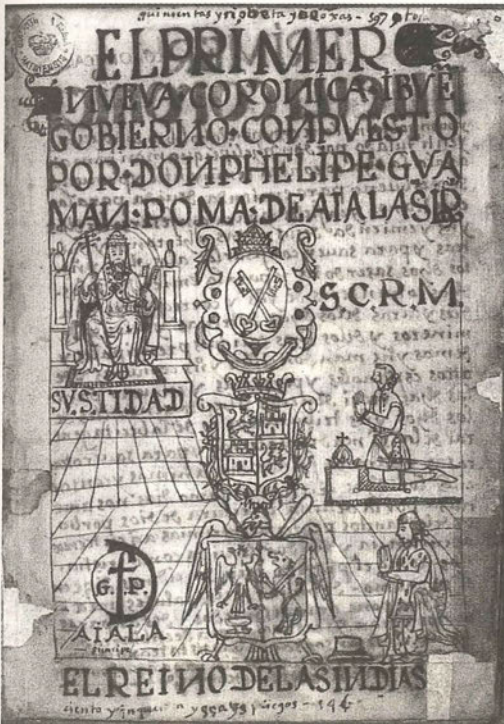 quinientas y nobeta y ojas - 597 ojas
EL PRIMER
NVEVA CORONICA I BVE
GOBIERNO·CONPVESTO
POR·DON PHELIPE·GVA
MAN·POMA·DE AIALA S͂IR
S.C.R.M.
SV.S.TIDAD
G. P.
AIALA
principe
EL REINO DE LAS INDIAS
ciento y pliegos - 146